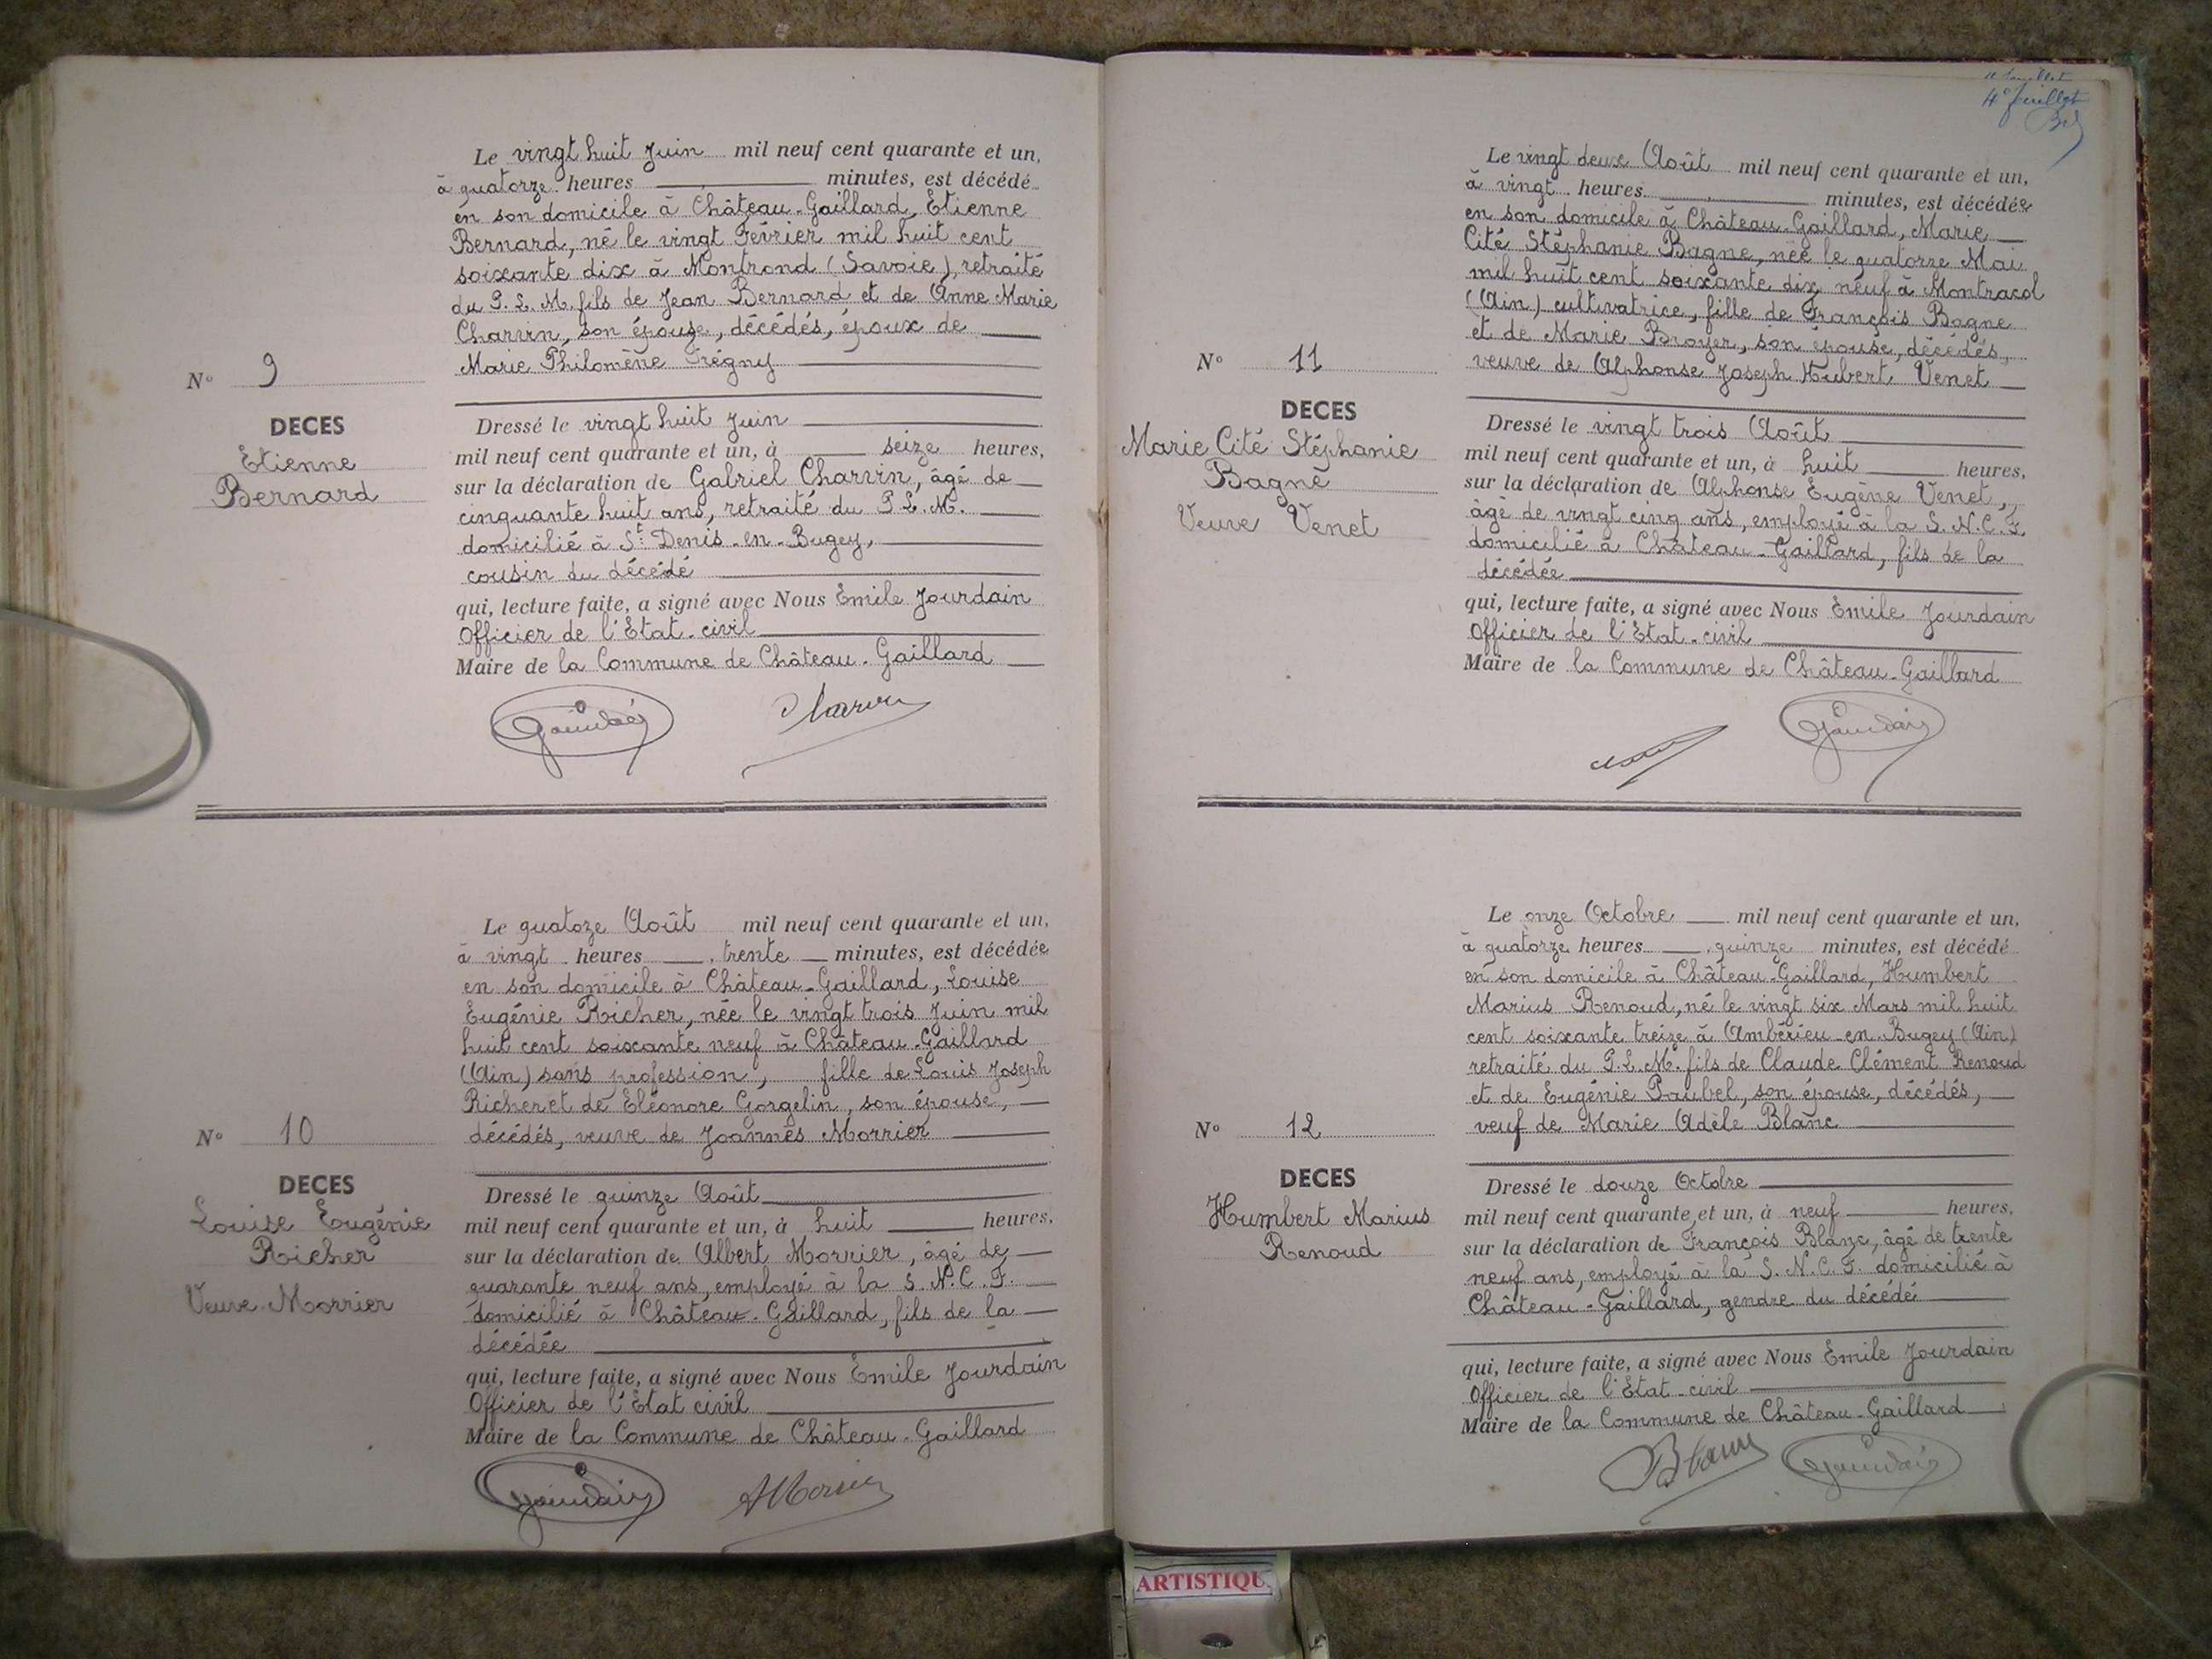 Le vingt huit Juin mil neuf cent quarante et un,
à quatorze heures minutes, est décédé
en son domicile à Château-Gaillard, Etienne
Bernard, né le vingt Février mil huit cent
soixante dix à Montrond (Savoie), retraité
du P.L.M. fils de Jean Bernard et de Anne Marie
Charvin, son épouse, décédés, époux de
Marie Philomène
N° 9
DECES
Etienne
Bernard
Dressé le vingt huit Juin
mil neuf cent quarante et un, à seize heures,
sur la déclaration de Gabriel Charvin, âgé de
cinquante huit ans, retraité du P.L.M.
domicilié à St Denis-en-Bugey,
cousin du décédé
qui, lecture faite, a signé avec Nous Emile Jourdain
Officier de l'Etat-civil
Maire de la Commune de Château-Gaillard
Jourdain Charvin
Le quatoze Août mil neuf cent quarante et un,
à vingt heures trente minutes, est décédée
en son domicile à Château-Gaillard, Louise
Eugénie Richer, née le vingt trois Juin mil
huit cent soixante neuf à Château-Gaillard
(Ain) sans profession, fille de Louis Joseph
Richer et de Eléonore Gorgelin, son épouse,
décédés, veuve de Joannès Morrier
N° 10
DECES
Louise Eugénie
Richer
Veuve Morrier
Dressé le quinze Août
mil neuf cent quarante et un, à huit heures,
sur la déclaration de Albert Morrier, âgé de
quarante neuf ans, employé à la S.N.C.F.
domicilié à Château-Gaillard, fils de la
décédée
qui, lecture faite, a signé avec Nous Emile Jourdain
Officier de l'Etat civil
Maire de la Commune de Château-Gaillard
Jourdain AMorrier
4e feuillet
Le vingt deux Août mil neuf cent quarante et un,
à vingt heures minutes, est décédée
en son domicile à Château-Gaillard, Marie
Cité Stéphanie Bagne, née le quatorze Mai
mil huit cent soixante dix neuf à Montracol
(Ain) cultivatrice, fille de François Bagne
et de Marie Broyer, son épouse, décédés,
veuve de Alphonse Joseph Hubert Venet
N° 11
DECES
Marie Cité Stéphanie
Bagne
Veuve Venet
Dressé le vingt trois Août
mil neuf cent quarante et un, à huit heures,
sur la déclaration de Alphonse Eugène Venet,
âgé de vingt cinq ans, employé à la S.N.C.F.
domicilié à Château-Gaillard, fils de la
décédée
qui, lecture faite, a signé avec Nous Emile Jourdain
Officier de l'Etat-civil
Maire de la Commune de Château-Gaillard
Jourdain
Le onze Octobre mil neuf cent quarante et un,
à quatorze heures quinze minutes, est décédé
en son domicile à Château-Gaillard, Humbert
Marius Renoud, né le vingt six Mars mil huit
cent soixante treize à Ambérieu-en-Bugey (Ain)
retraité du P.L.M. fils de Claude Clément Renoud
et de Eugénie Paubel, son épouse, décédés,
veuf de Marie Adèle Blanc
N° 12
DECES
Humbert Marius
Renoud
Dressé le douze Octobre
mil neuf cent quarante et un, à neuf heures,
sur la déclaration de François Blanc, âgé de trente
neuf ans, employé à la S.N.C.F. domicilié à
Château-Gaillard, gendre du décédé
qui, lecture faite, a signé avec Nous Emile Jourdain
Officier de l'Etat-civil
Maire de la Commune de Château-Gaillard
Blanc Jourdain
ARTISTIQU